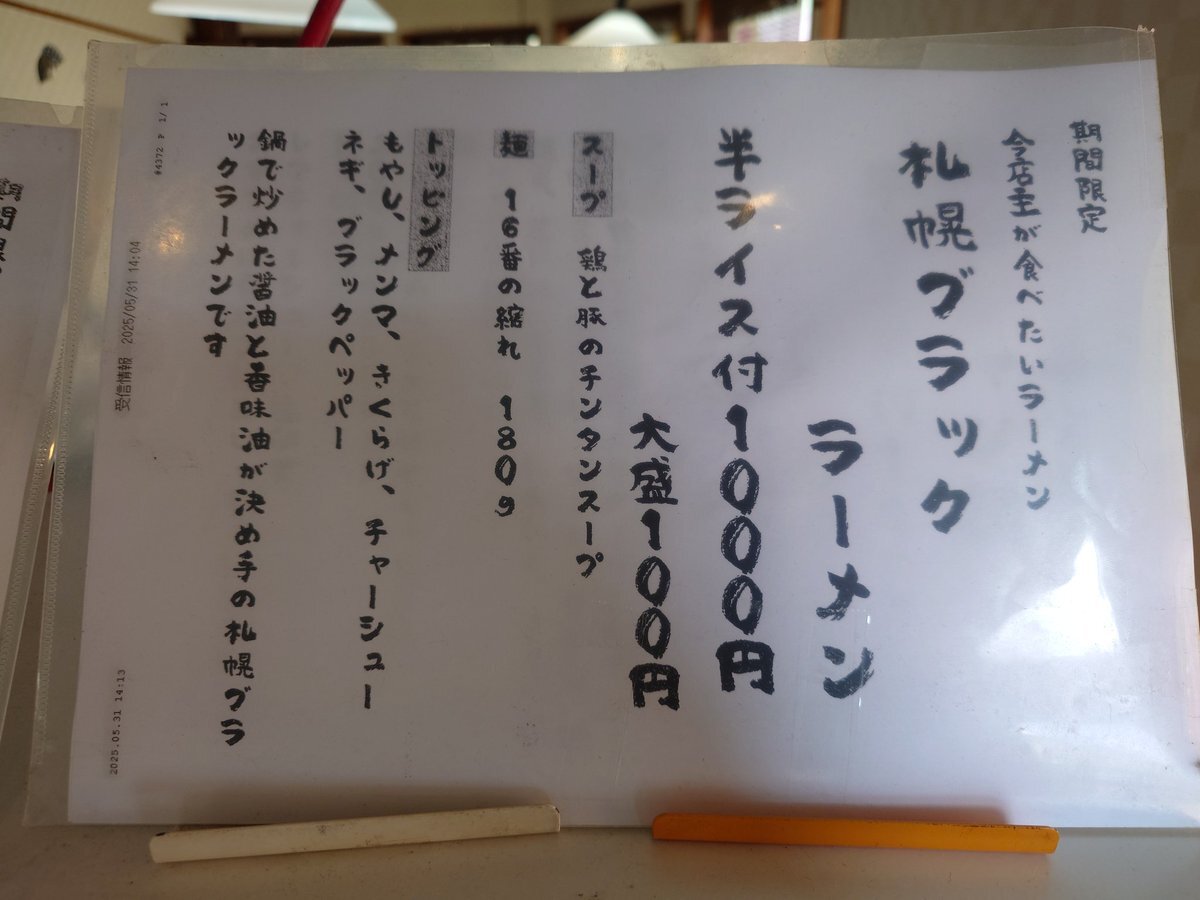 期間限定
今店主が食べたいラーメン
札幌ブラック
ラーメン
半ライス付1000円
大盛100円
スープ 鶏と豚のチンタンスープ
麺 16番の縮れ 180g
トッピング
もやし、メンマ、きくらげ、チャーシュー
ネギ、ブラックペッパー
鍋で炒めた醤油と香味油が決め手の札幌ブラ
ックラーメンです
#4372 P 1/ 1
受信情報 2025/05/31 14:04
2025.05.31 14:13
期間限